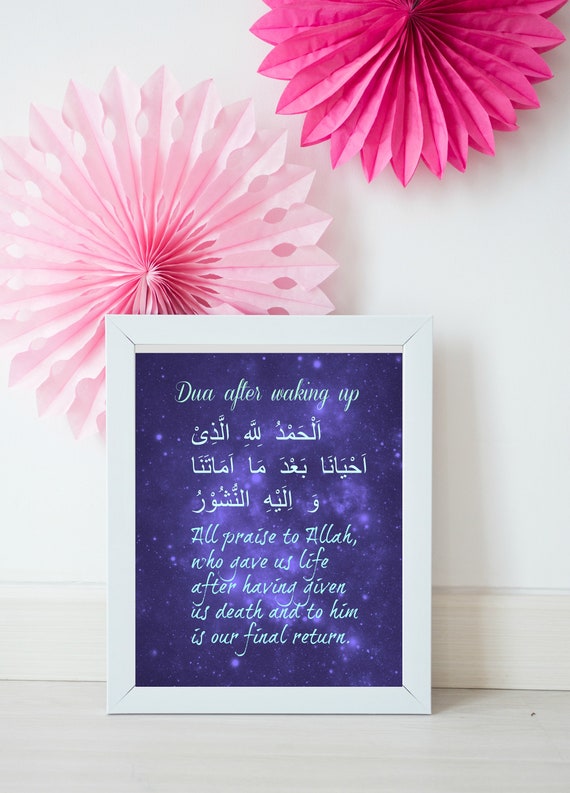 Dua after waking up
اَلْحَمْدُ لِلَّهِ الَّذِىْ
اَحْيَانَا بَعْدَ مَا اَمَاتَنَا
وَ اِلَيْهِ النُّشُوْرُ
All praise to Allah,
who gave us life
after having given
us death and to him
is our final return.